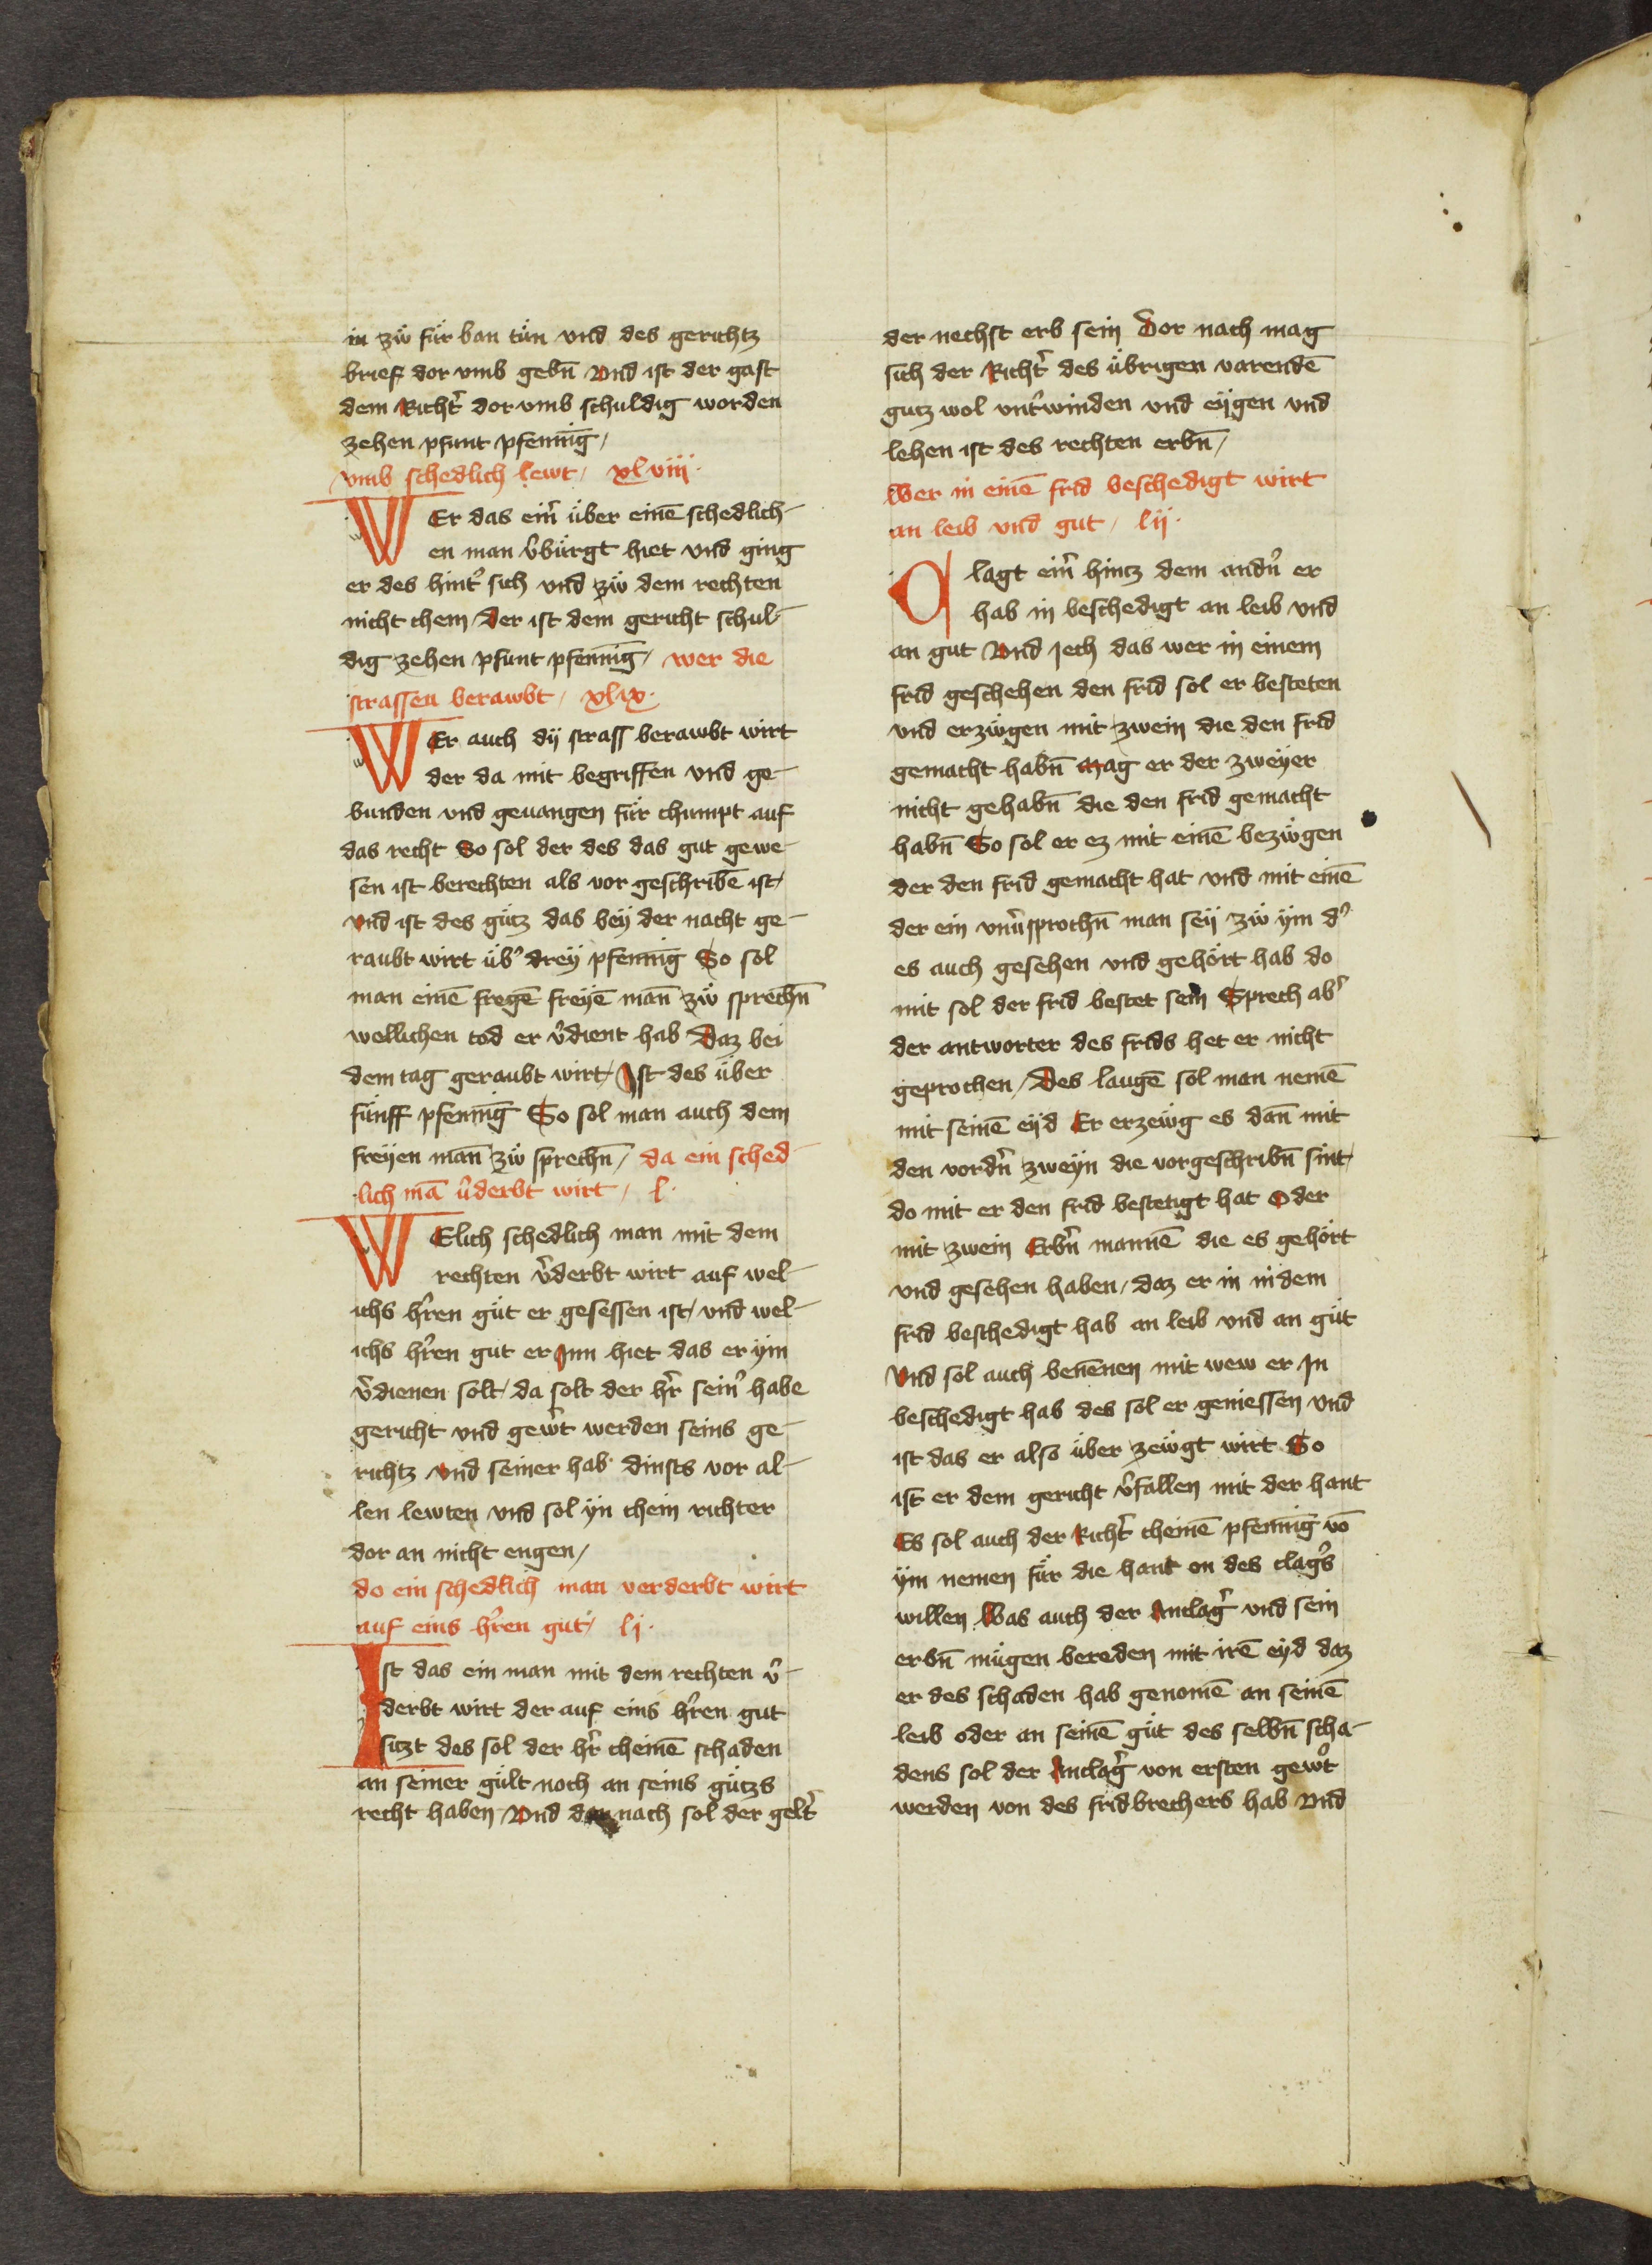 in zẅ für ban tün vnd des gerichtz
brief dor vmb gebn̄ Vnd ist der gast
dem Richt͛ dor vmb schuldig worden
zehen pfunt pfenni̅g /
vmb schedlich lewt / xlviii ·
WEr das ein͛ über eine̅ schedlich-
en man v͛bürgt hiet vnd ging
er des hint͛ sich vnd zẅ dem rechten
nicht chem / Der ist dem gericht schul-
dig zehen pfunt pfenni̅g / wer die
strassen berawbt / xlix ·
WEr auch dÿ strass berawbt wirt
der da mit begriffen vnd ge-
bunden vnd geuangen für chumpt auf
das recht So sol der des das gut gewe-
sen ist berechten als vor geschribe̅ ist /
vnd ist des gütz das beÿ der nacht ge-
raubt wirt üb͛ dreÿ pfenni̅g So sol
man eine̅ frege̅ freÿe̅ man̅ zẅ sprechn̅
wellichen tod er v͛dient hab Daz bei
dem tag geraubt wirt / Ist des über
fünff pfenni̅g So sol man auch dem
freÿen man̅ zẅ sprechn̅ / da ein sched-
lich ma̅ v͛derbt wirt / l ·
WElich schedlich man mit dem
rechten v͛derbt wirt auf wel-
ichs h͛ren güt er gesessen ist / vnd wel-
ichs h͛ren gut er Inn hiet das er ÿm
v͛dienen solt / da solt der h͛r sein͛ habe
gericht vnd gew͛t werden seins ge-
richtz vnd seiner hab dinsts vor al-
len lewten vnd sol ÿn chein richter
dor an nicht engen /
do ein schedlich man verderbt wirt
auf eins h͛ren gut / lj ·
Ist das ein man mit dem rechten v͛-
derbt wirt der auf eins h͛ren gut
sitzt des sol der h͛r cheine̅ schaden
an seiner gült noch an seins gützs
recht haben Vnd dar nach sol der gelt͛
der nechst erb sein Dor nach mag
sich der Richt͛ des übrigen varende̅
gutz wol vnt͛winden vnd eÿgen vnd
lehen ist des rechten erbn̅ /
Wer in eine̅ frid beschedigt wirt
an leib vnd gut / lij ·
Clagt ein͛ hintz dem andn͛ er
hab in beschedigt an leib vnd
an gut Vnd jech das wer in einem
frid geschehen den frid sol er besteten
vnd erzẅgen mit zwein die den frid
gemacht habn̅ Mag er der zweÿer
nicht gehabn̅ die den frid gemacht
habn̅ So sol er ez mit eine̅ bezẅgen
der den frid gemacht hat vnd mit eine̅
der ein vnv͛sprochn̅ man seÿ zẅ ÿm d͛
es auch gesehen vnd gehört hab do
mit sol der frid bestet sein Sprech ab͛
der antworter des frids het er nicht
geprochen / Des lauge̅ sol man neme̅
mit seine̅ eÿd Er erzewg es dan̅ mit
den vordn͛ zweÿn die vorgeschribn̅ sint /
do mit er den frid bestetigt hat Oder
mit zwein Erbn͛ manne̅ die es gehört
vnd gesehen haben / daz er in in dem
frid beschedigt hab an leib vnd an güt
Vnd sol auch bene̅nen mit wew er In
beschedigt hab des sol er geniessen vnd
ist das er also über zeẅgt wirt So
ist er dem gericht v͛fallen mit der hant
Es sol auch der Richt͛ cheine̅ pfenni̅g vo̅
ÿm nemen für die hant on des clag͛s
willen Was auch der Anclag͛ vnd sein
erbn̅ mügen bereden mit ire̅ eÿd daz
er des schaden hab genome̅ an seine̅
leib oder an seine̅ güt des selbn̅ scha-
dens sol der Anclag͛ von ersten gew͛t
werden von des fridbrechers hab Vnd